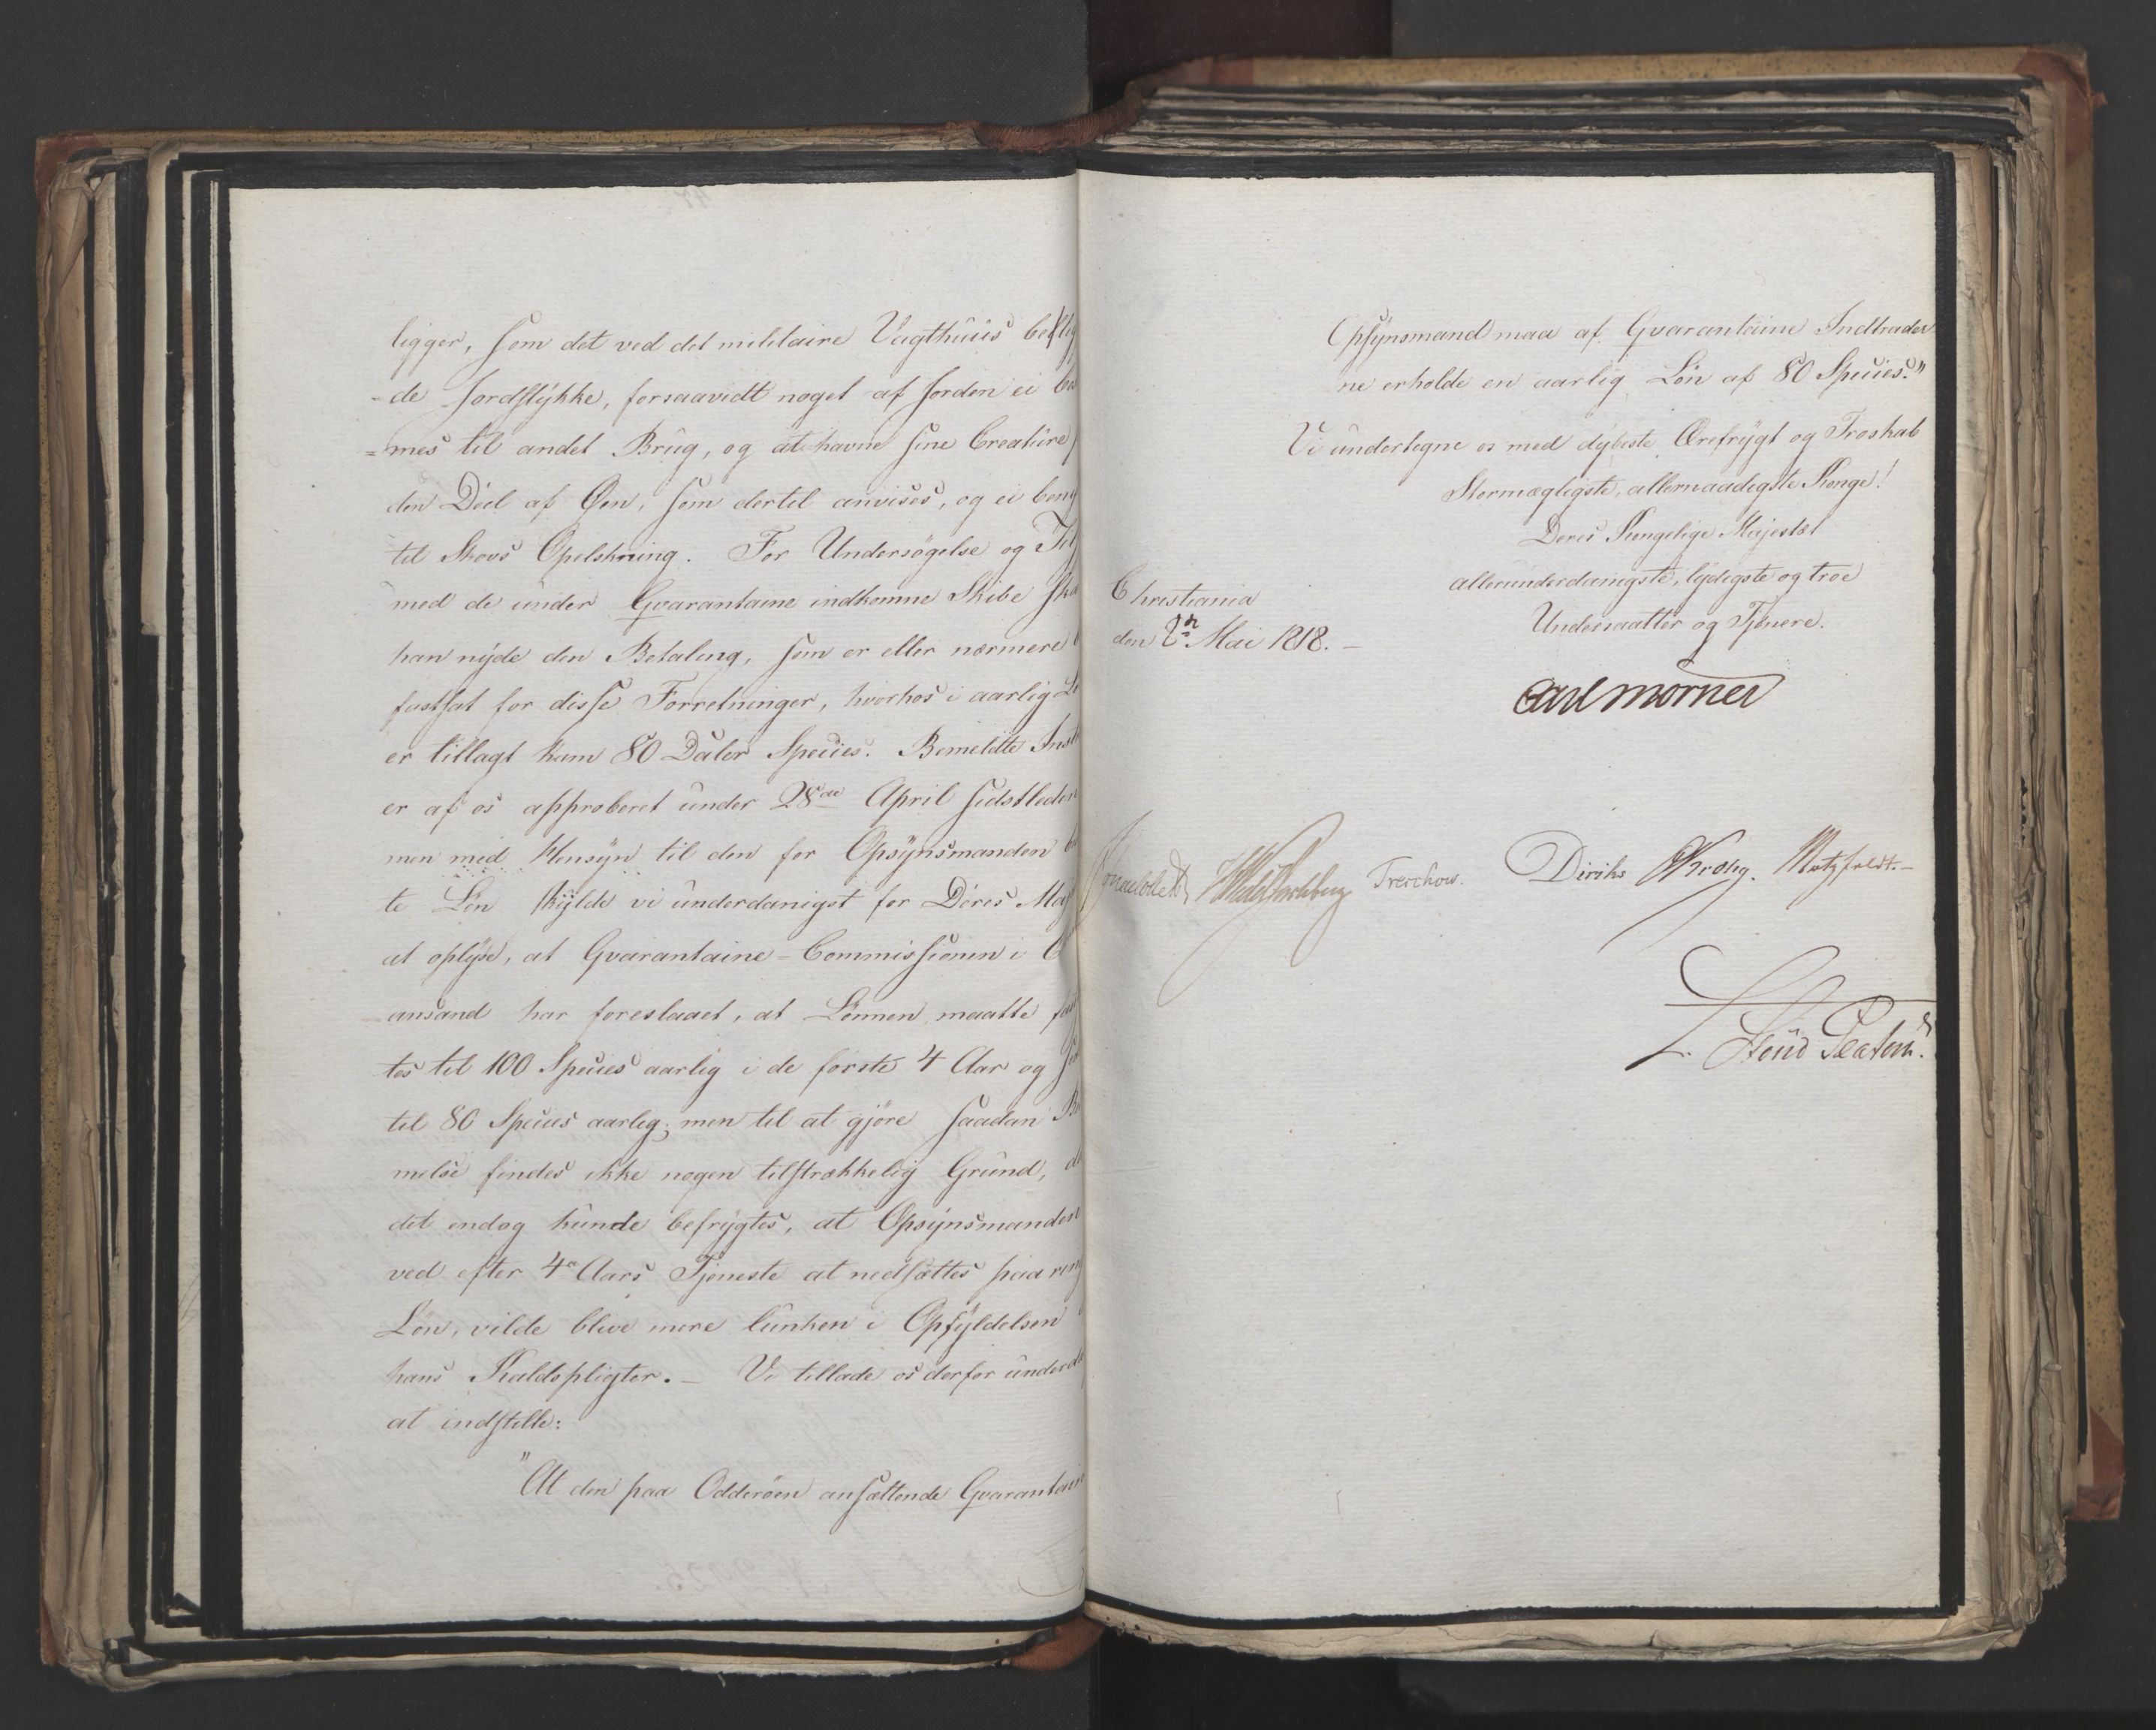 ligger, som det ved det militaire Vagthuus
-de Jordstykke, forsaavidt noget af Jorden ei
=mes til andet Brug, og at havne sine Creature
den Deel af Øen, som dertil anvises, og ei
til Skovs Opelskning. For Undersøgelse og
med de under Qvarantaine indkomne Skibe
han nyde den Betaling, som er eller nærmere
fastsat for disse Forretninger, hvorhos i aarlig
er tillagt ham 80 Daler Species. Bemeldte
er af os approberet under 28de April sidstleden
men med Hensyn til den for Opsynsmanden
te Løn skulde vi underdanigst for Deres
at oplyse, at Qvarantaine-Commissionen i
ansand har foreslaaet, at Lønnen maatte
tes til 100 Species aarlig i de første 4 Aar og
til 80 Species aarlig; men til at gjøre saadan
melse findes ikke nogen tilstrækkelig Grund,
det endog kunde befrygtes, at Opsynsmanden
ved efter 4re Aars Tjeneste at nedsættes paa
Løn, vilde blive mere lunken i Opfyldelsen
hans Kaldspligter. – Vi tillade os derfor
at indstille:
"At den paa Odderøen ansættende
Opsynsmand maa af Qvarantaine Indtræder
ne erholde en aarlig Løn af 80 Species."
Vi undertegne os med dybeste Ærefrygt og Troskab
Stormægtigste, allernaadigste Konge!
Deres Kongelige Majestæt
allerunderdanigste, lydigste og troe
Undersaatter og Tjenere.
Christiania
den 2n Mai 1818. –
Carl Mörner
Treschow. Diriks Krohg. Motzfeldt. –